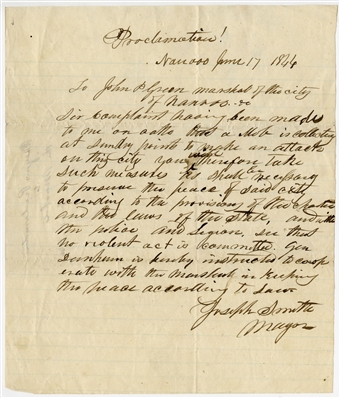 Proclamation!
Nauvoo June 17 1844
To John P. Green marshal of the city
of Nauvoo &c
Sir Complaint having been made
to me on oath that a Mob is collecting
at sundry points to make an attack
on this city you will Therefore take
such measures as shall be necessary
to preserve the peace of said city
according to the provisions of the Charter
and the laws of the State, and with
the police and Legion, see that
no violent act is Committed. Gen
Dunham is hereby instructed to coop
erate with the Marshal in keeping
the peace according to Law
Joseph Smith
Mayor